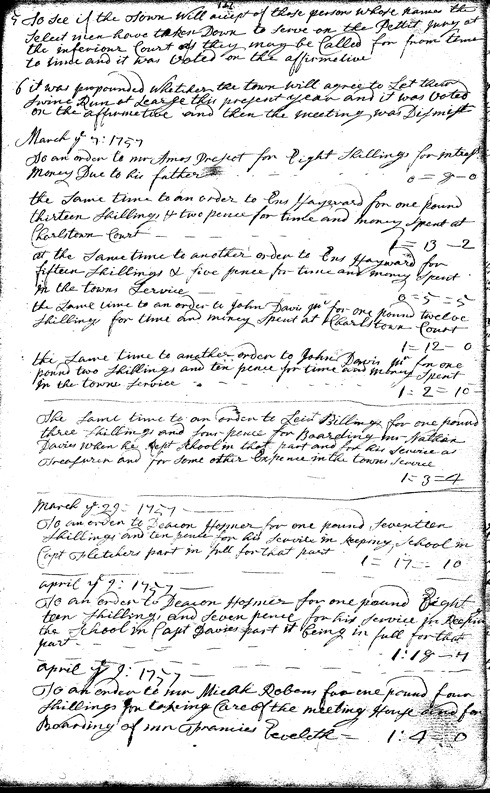 121
5 To see if the Town will accept of those person whose names the
Select men have taken Down to serve on the Pettit Jury at
the inferiour Court as they may be Called for from time
to time and it was voted on the affirmative
6 it was propounded whether the town will agree to Let their
Swine Run at Learge this present year and it was voted
on the affirmetive and then the meeting was Dismist
March ye 7: 1757
To an order to mr Amos Prescot for Eight Shillings for intrest
Money Due to his father 0=8=0
the Same time to an order to Ens Hayward for one pound
thirteen Shillings & two pence for time and money Spent at
Charlstown Court 1=13-2
at the Same time to another order to Ens Hayward for
fifteen Shillings & five pence for time and money Spent
in the towns Service 0=5=5
the Same time to an order to John Davis junr for one pound twelve
Shillings for time and money Spent at Charlstown Court
1=12-0
the Same time to another order to John Davis junr for one
pound two Shillings and ten pence for time and money Spent
In the towns Service 1=2=10
The Same time to an order to Leiut Billings for one pound
three Shillings and four pence for Boarding mr Nathan
Davies when he kept School in that part and for his Service as
Treasurer and for Some other Expence in the towns Service
1=3=4
March ye 29: 1757
To an order to Deacon Hosmer for one pound Seventeen
Shillings and ten pence for his Service in keeping School in
Capt Fletchers part in full for that part 1=17=10
april ye 9: 1757
To an order to Deacon Hosmer for one pound Eight
teen Shillings and Seven pence for his Service for Keeping
the School in Capt Davies part it being in full for that
part 1:18-7
april ye 9: 1757
To an order to mr Micah Robens for one pound four
Shillings for taking Care of the meeting House and for
Boarding of mr Francies Eveleth = 1:4=0